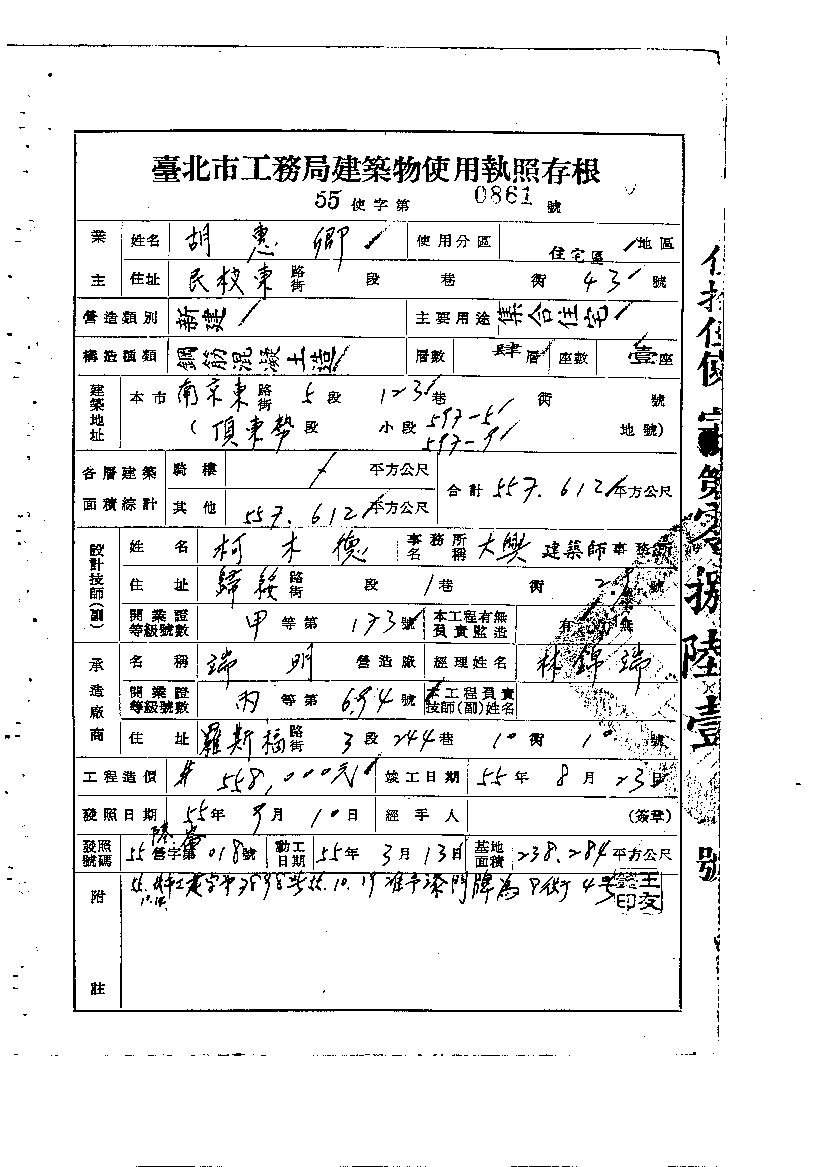 臺北市工務局建築物使用執照存根
55 使字第 0861 號
業主 姓名 胡惠卿 使用分區 住宅區 地區
住址 民校東 路街 段 巷 街 43 號
營造類別 新建 主要用途 集合住宅
構造種類 鋼筋混凝土造 層數 肆層 座數 壹座
建築地址 本市 南京東 路街 5 段 123 巷 街 號
(頂東勢 段 小段 597-5 597-9 地號)
各層建築面積綜計 騎樓 / 平方公尺 合計 557.612 平方公尺
其他 557.612 平方公尺
設計技師(副) 姓名 柯木德 事務所名稱 大興 建築師事務所
住址 歸綏 路街 段 1 巷 街 號
開業證等級號數 甲 等第 173 號 本工程有無負責監造 有
承造廠商 名稱 瑞明 營造廠 經理姓名 林錦瑞
開業證等級號數 丙 等第 694 號 本工程負責技師(副)姓名
住址 羅斯福 路街 3 段 244 巷 10 街 10 號
工程造價 558,000元 竣工日期 55年 8月 23日
發照日期 55年 9月 10日 經手人 (簽章)
發照號碼 55 營字第 018 號 動工日期 55年 3月 13日 基地面積 238.284 平方公尺
附註 55.10.19 准予 門牌為 街 4 号
王友 印
字第零捌陸壹號